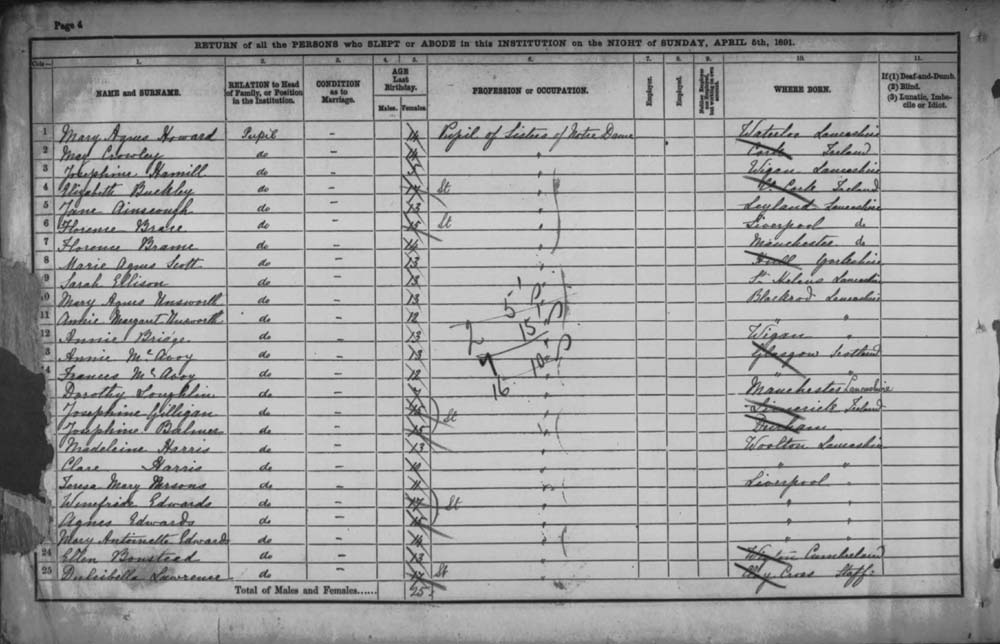 Page 4
RETURN of all the PERSONS who SLEPT or ABODE in this INSTITUTION on the NIGHT of SUNDAY, APRIL 5th, 1891.
1. 2. 3. 4. 5. 6. 7. 8. 9. 10. 11.
NAME and SURNAME. RELATION to Head of Family, or Position in the Institution. CONDITION as to Marriage. AGE Last Birthday. Males. Females. PROFESSION or OCCUPATION. Employer. Employed. WHERE BORN. If (1) Deaf-and-Dumb. (2) Blind. (3) Lunatic, Imbecile or Idiot.
1 Mary Agnes Howard Pupil - 14 Pupil of Sisters of Notre Dame Waterloo Lancashire
2 May Crowley do - 14 " Cork Ireland
3 Josephine Hamill do - " Wigan Lancashire
4 Elizabeth Buckley do - 17 St " Co Cork Ireland
5 Jane Ainscough do - 13 " Leyland Lancashire
6 Florence Brace do - 15 St " Liverpool do
7 Florence Brame do - 14 " Manchester do
8 Marie Agnes Scott do - 13 " Hull Yorkshire
9 Sarah Ellison do - 13 " St Helens Lancashire
10 Mary Agnes Unsworth do - 13 " Blackrod Lancashire
11 Annie Margaret Unsworth do - 12 " " "
12 Annie Bridge do - 13 " Wigan "
3 Annie McAvoy do - 13 " Glasgow Scotland
14 Frances McAvoy do - 12 " " "
Dorothy Loughlin do - " Manchester Lancashire
Josephine Gilligan do - 15 St " Limerick Ireland
Josephine Balmer do - 15 " Durham
Madeleine Harris do - 13 " Woolton Lancashire
Clare Harris do - " " "
Teresa Mary Parsons do - 11 " Liverpool "
Winefride Edwards do - 17 St " " "
Agnes Edwards do - 15 " " "
Mary Antoinette Edwards do - 14 " " "
24 Ellen Bonstead do - 13 " Wigton Cumberland
25 Dulcibella Lawrence do - 17 St " Cross Staff:
Total of Males and Females...... 25